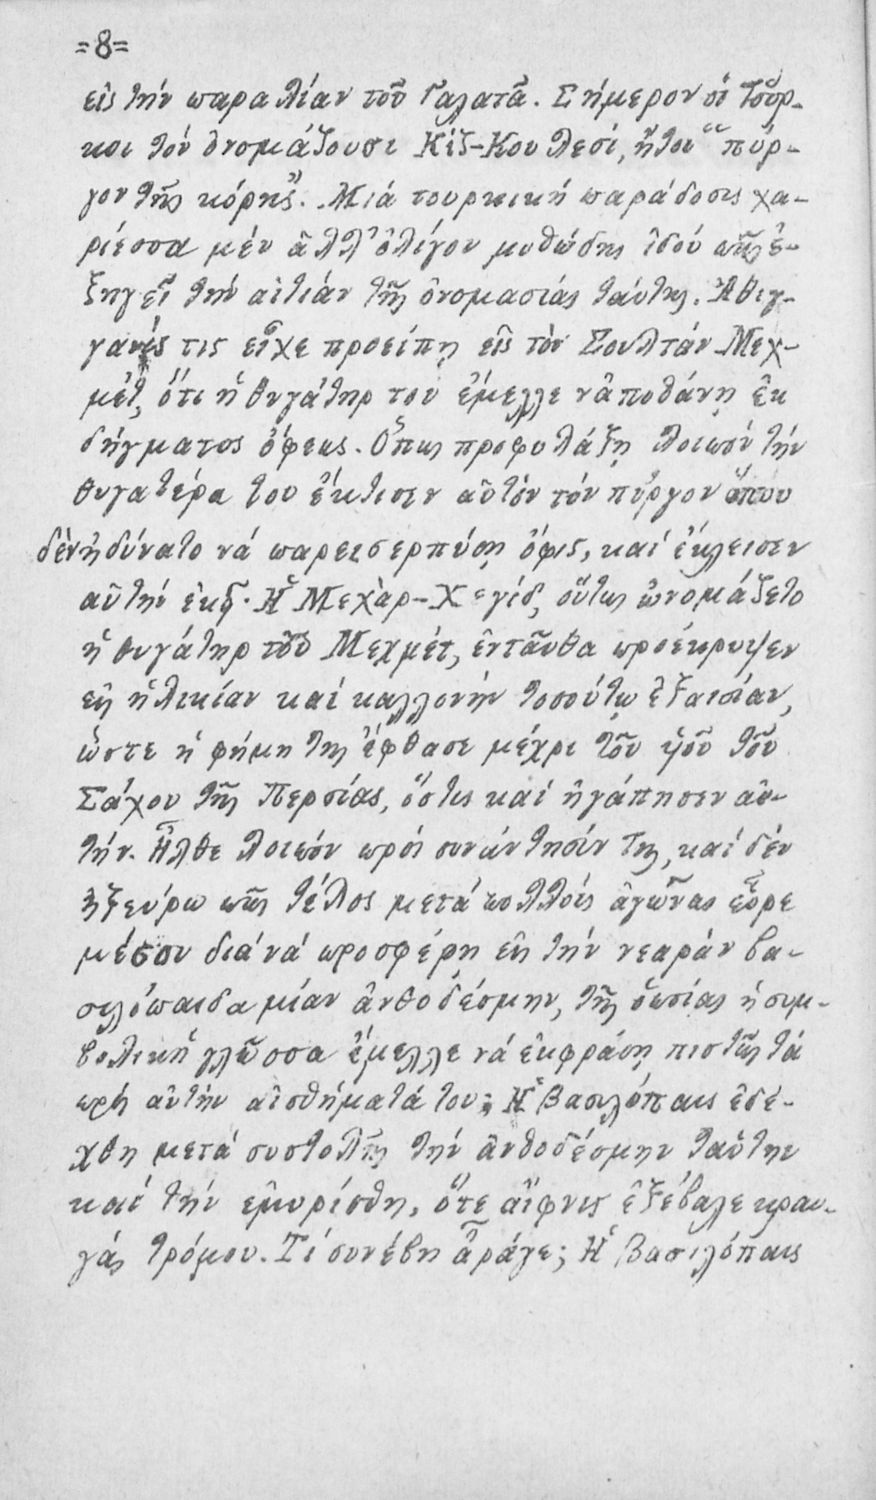 =8=
εἰς τήν παραλίαν τοῦ Γαλατᾶ. Σήμερον οἱ Τοῦρ-
κοι τόν ὀνομάζουσι Κίζ-Κουλεσί, ἤτοι "πύρ-
γον τῆς κόρης". Μιά τουρκική παράδοσις χα-
ρίεσσα μέν ἀλλ' ὀλίγον μυθώδης ἰδού πῶς ἐ-
ξηγεῖ τήν αἰτίαν τῆς ὀνομασίας ταύτης. Ἀθιγ-
γανίς τις εἶχε προείπῃ εἰς τόν Σουλτάν Μεχ-
μέτ, ὅτι ἡ θυγάτηρ του ἔμελλε ν' ἀποθάνῃ ἐκ
δήγματος ὄφεως. Ὅπως προφυλάξῃ λοιπόν τήν
θυγατέρα του ἔκτισεν αὐτόν τόν πύργον ὅπου
δέν ἠδύνατο νά παρεισερπύσῃ ὄφις, καί ἔκλεισεν
αὐτήν ἐκεῖ. Ἡ Μεχάρ-Χεγίδ, οὕτως ὠνομάζετο
ἡ θυγάτηρ τοῦ Μεχμέτ, ἐνταῦθα προέκοψεν
εἰς ἡλικίαν καί καλλονήν τοσούτῳ ἐξαισίαν,
ὥστε ἡ φήμη της ἔφθασε μέχρι τοῦ υἱοῦ τοῦ
Σάχου τῆς Περσίας, ὅστις καί ἠγάπησεν αὐ-
τήν. Ἦλθε λοιπόν πρός συνάντησίν της, καί δέν
ἠξεύρω πῶς τέλος μετά πολλούς ἀγῶνας εὗρε
μέσον διά νά προσφέρῃ εἰς τήν νεαράν βα-
σιλόπαιδα μίαν ἀνθοδέσμην, τῆς ὁποίας ἡ συμ-
βολική γλῶσσα ἔμελλε νά ἐκφράσῃ πιστῶς τά
πρός αὐτήν αἰσθήματά του; Ἡ Βασιλόπαις ἐδέ-
χθη μετά συστολῆς τήν ἀνθοδέσμην ταύτην
καί τήν ἐμυρίσθη, ὅτε αἴφνις ἐξέβαλε κραυ-
γάς τρόμου. Τί συνέβη ἆράγε; Ἡ Βασιλόπαις